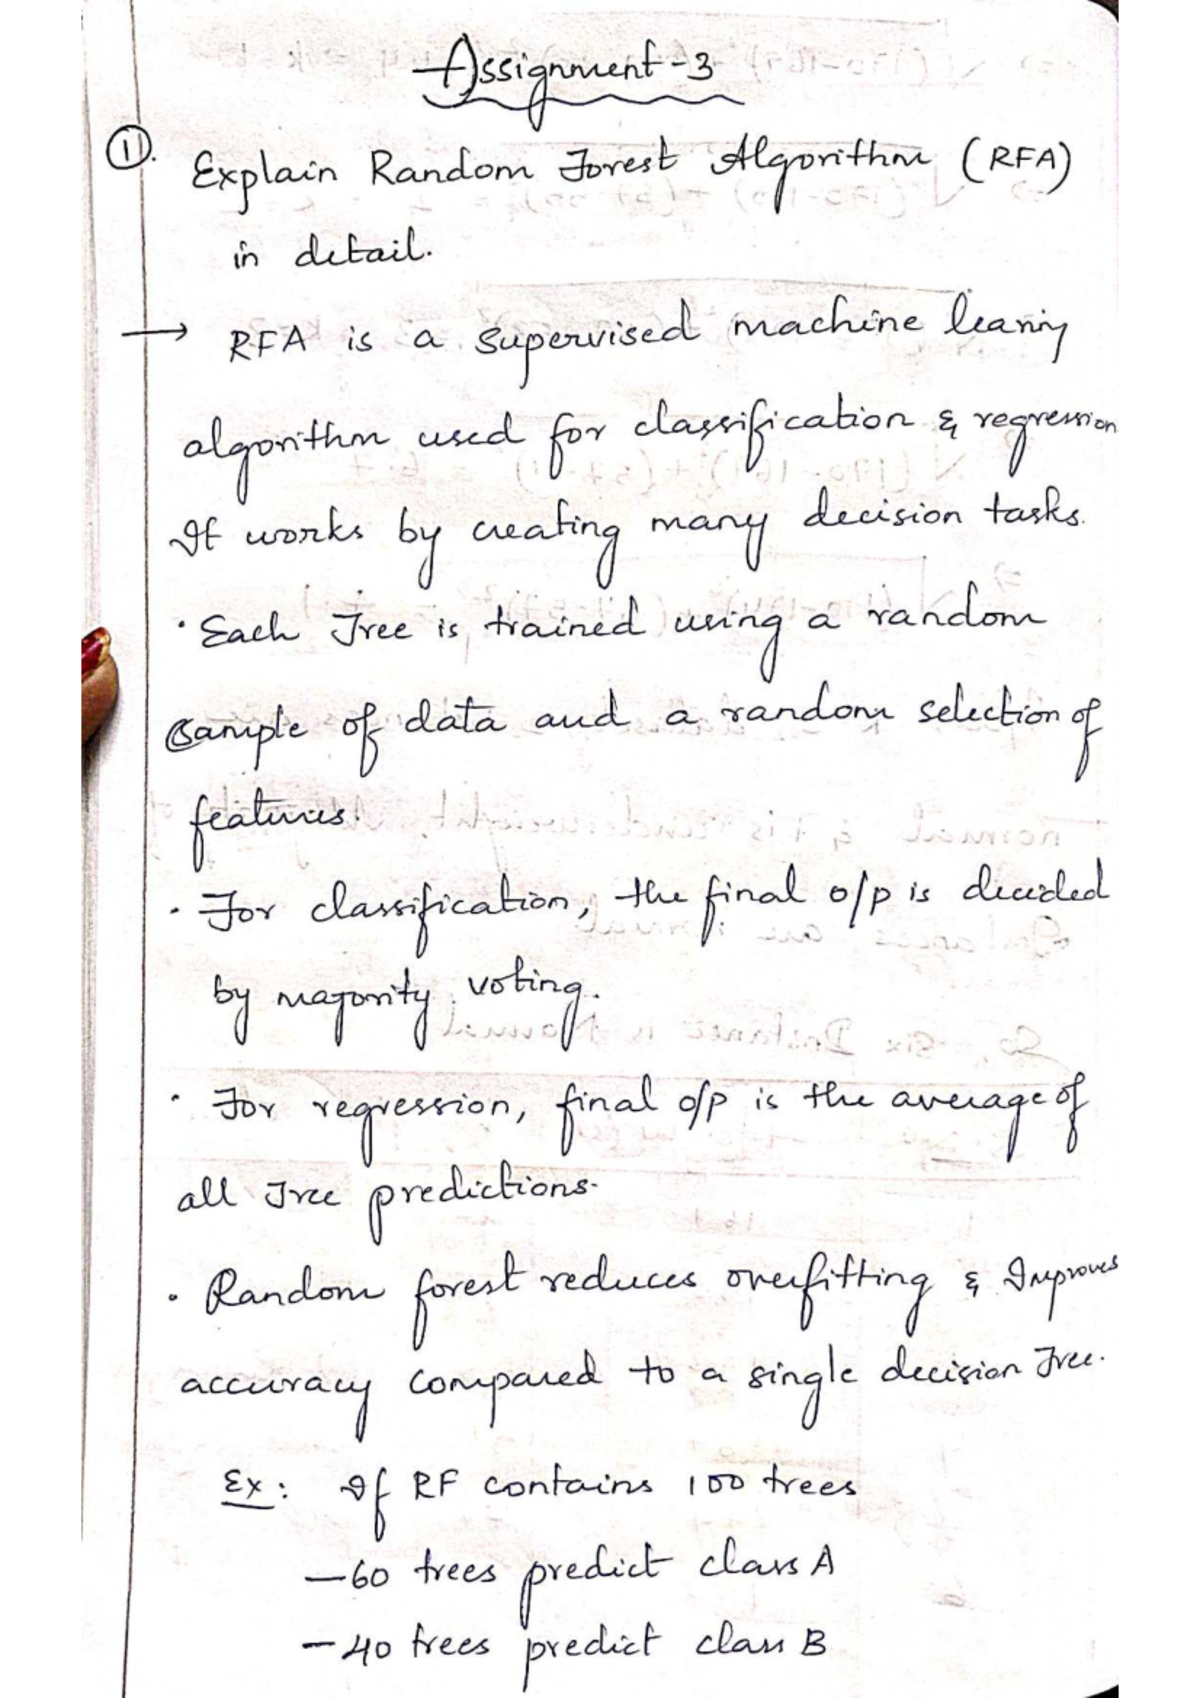 Assignment-3
①. Explain Random Forest Algorithm (RFA)
in detail.
→ RFA is a supervised machine learnig
algorithm used for classification & regression
It works by creating many decision tasks.
· Each Tree is trained using a random
sample of data and a random selection of
features.
· For classification, the final o/p is decided
by majority voting.
· For regression, final o/p is the average of
all Tree predictions.
· Random forest reduces overfitting & Improves
accuracy compared to a single decision Tree.
Ex: If RF contains 100 trees
—60 trees predict class A
—40 trees predict class B